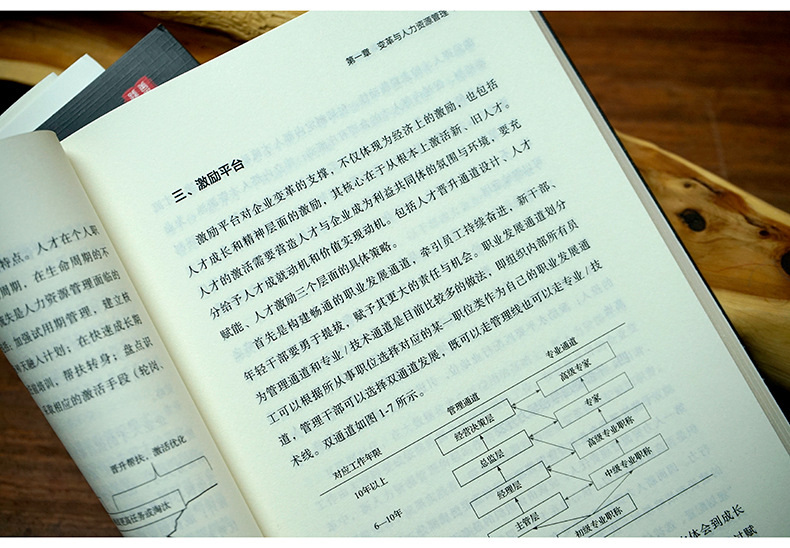 特点。人才在个人职
周期，在生命周期的不
缺失是人力资源管理面临的
加强试用期管理，建立核
天融人计划；在快速成长期
培训，帮扶转身；盘点识
采取相应的激活手段（轮岗、
晋升帮扶、激活优化
更高任务或淘汰
第一章 变革与人力资源管理
三、激励平台
激励平台对企业变革的支撑，不仅体现为经济上的激励，也包括
人才成长和精神层面的激励，其核心在于从根本上激活新、旧人才。
人才的激活需要营造人才与企业成为利益共同体的氛围与环境，要充
分给予人才成就动机和价值实现动机。包括人才晋升通道设计、人才
赋能、人才激励三个层面的具体策略。
首先是构建畅通的职业发展通道，牵引员工持续奋进，新干部、
年轻干部要勇于提拔，赋予其更大的责任与机会。职业发展通道划分
为管理通道和专业/技术通道是目前比较多的做法，即组织内部所有员
工可以根据所从事职位选择对应的某一职位类作为自己的职业发展通
道，管理干部可以选择双通道发展，既可以走管理线也可以走专业/技
术线。双通道如图1-7所示。
对应工作年限
管理通道
专业通道
10年以上
经营决策层
高级专家
总监层
专家
6—10年
经理层
高级专业职称
主管层
中级专业职称
初级专业职称
体会到成长